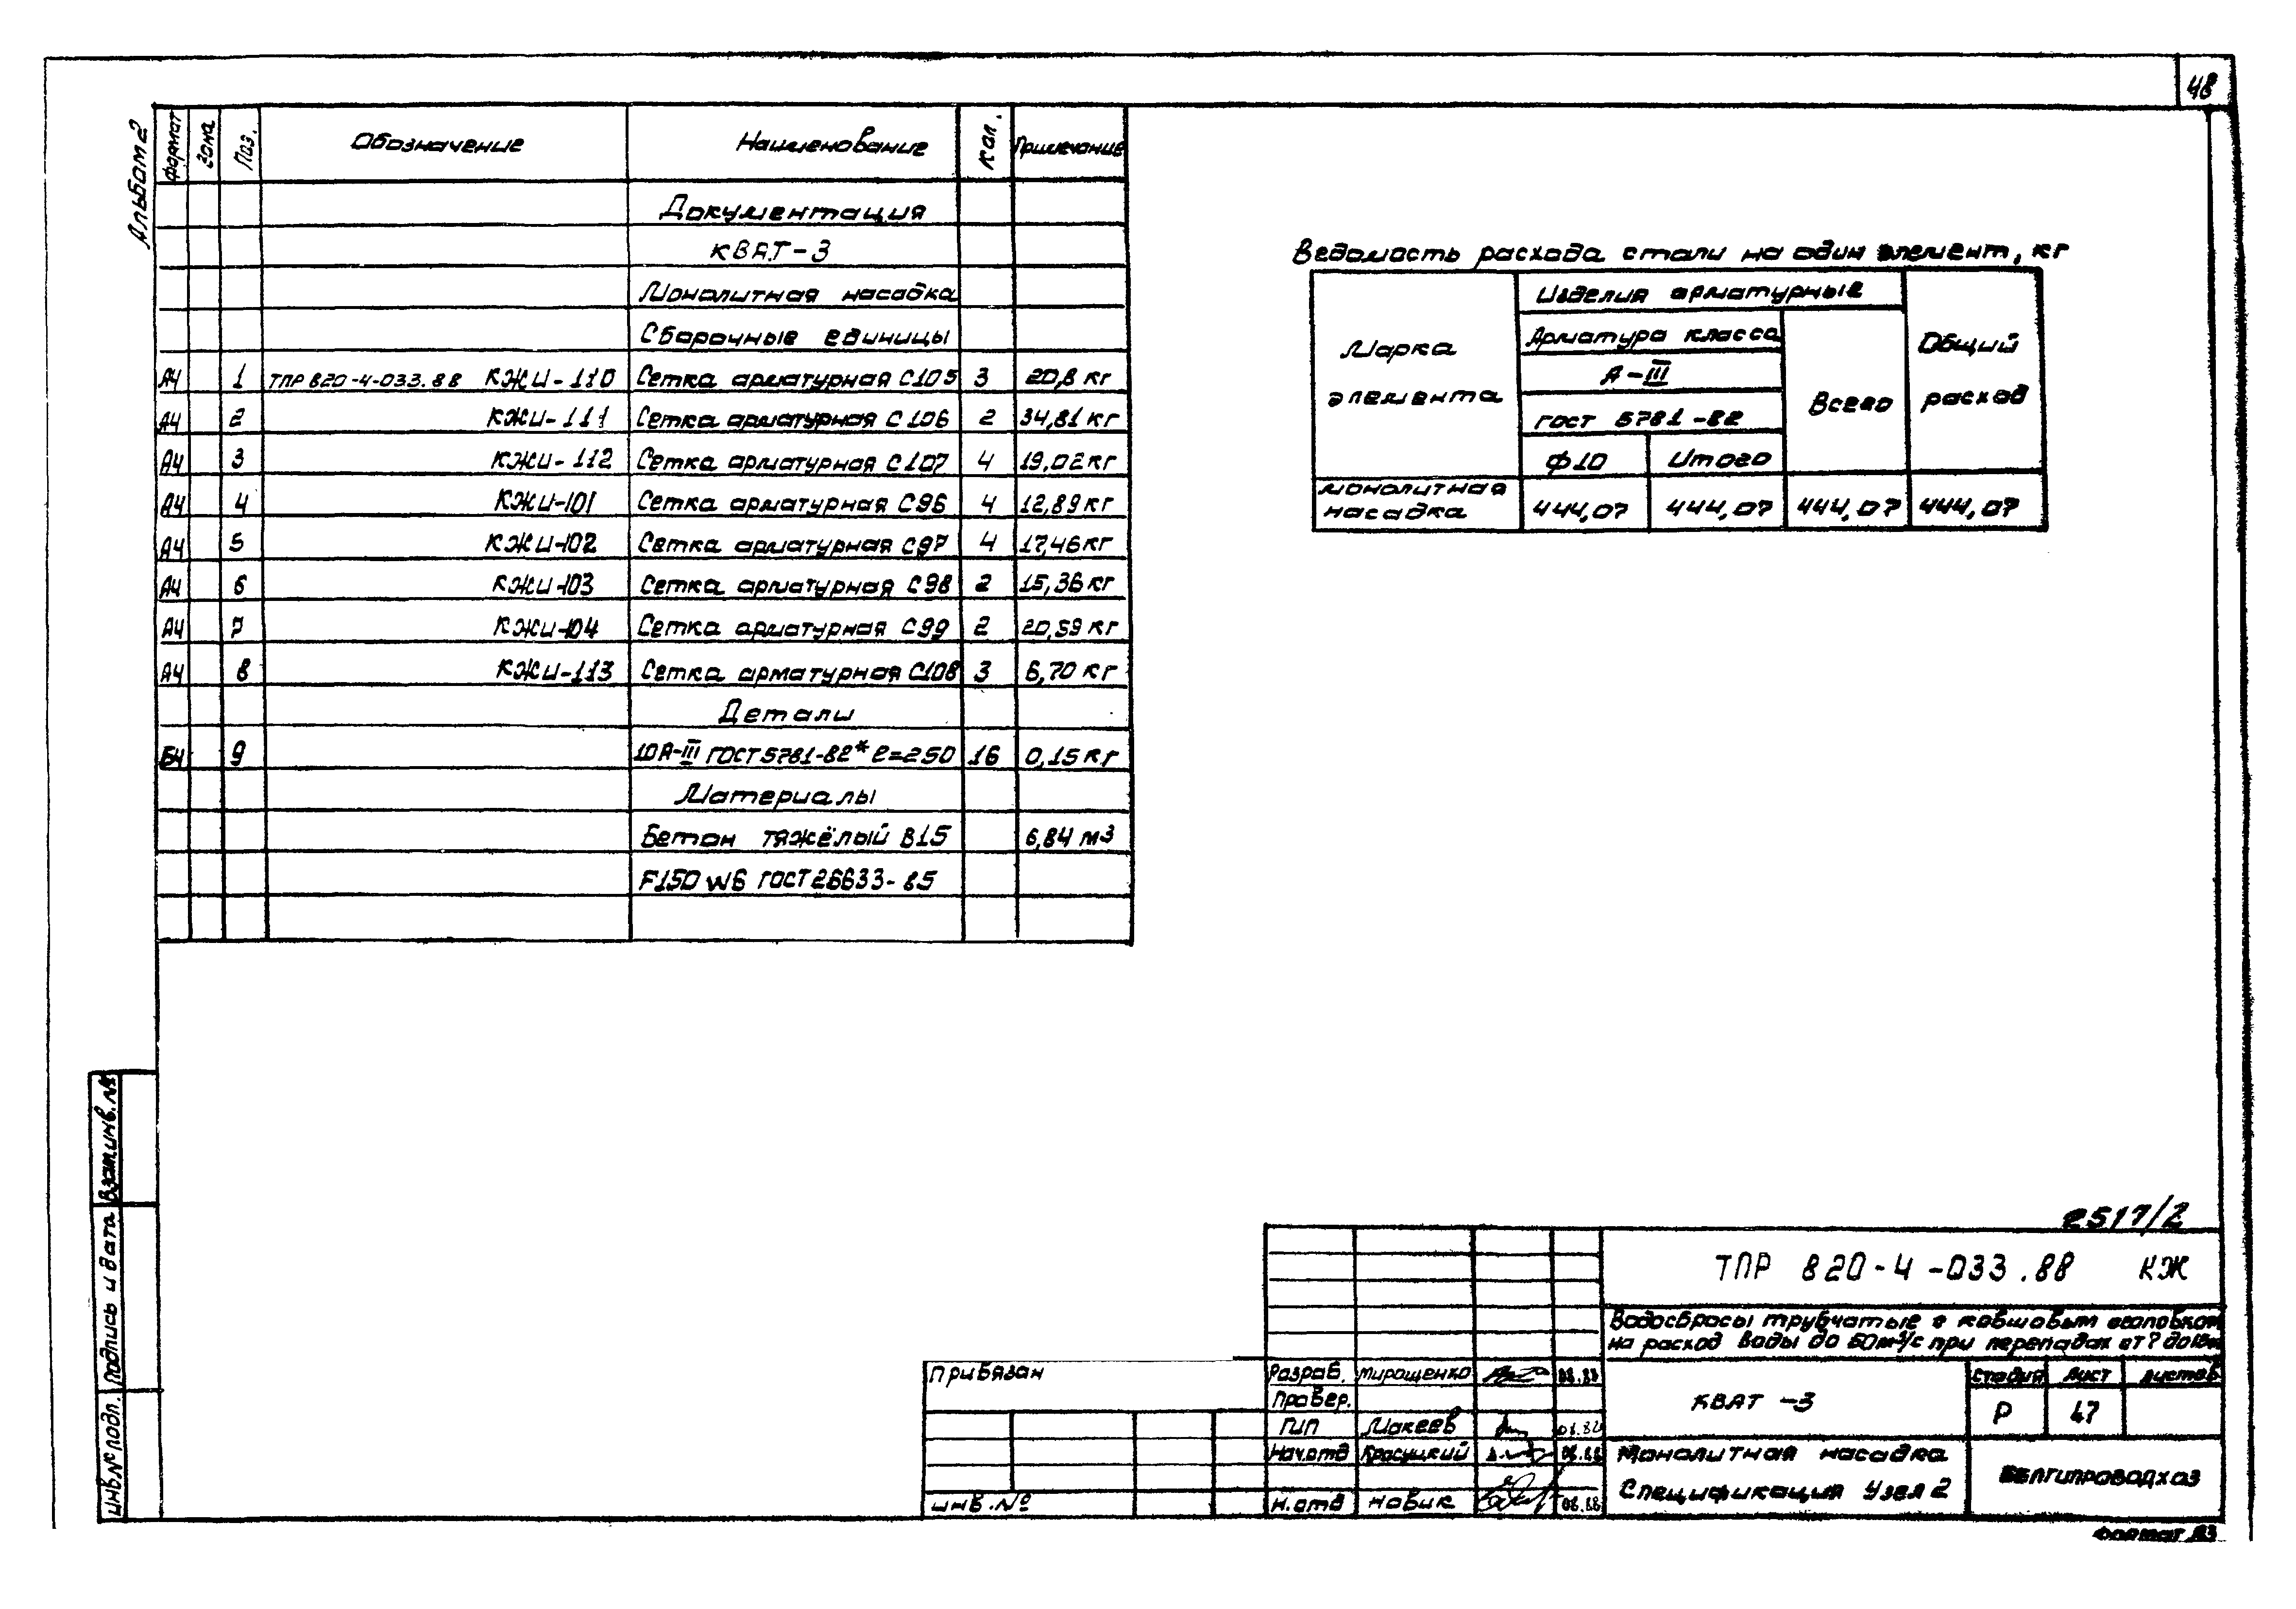 48
Альбом 2
Формат Зона Поз. Обозначение Наименование Кол. Примечание
Документация
КВАТ-3
Монолитная насадка
Сборочные единицы
А4 1 ТПР 820-4-033.88 КЖИ-110 Сетка арматурная С105 3 20,8 кг
А4 2 КЖИ-111 Сетка арматурная С106 2 34,81 кг
А4 3 КЖИ-112 Сетка арматурная С107 4 19,02 кг
А4 4 КЖИ-101 Сетка арматурная С96 4 12,89 кг
А4 5 КЖИ-102 Сетка арматурная С97 4 17,46 кг
А4 6 КЖИ-103 Сетка арматурная С98 2 15,36 кг
А4 7 КЖИ-104 Сетка арматурная С99 2 20,59 кг
А4 8 КЖИ-113 Сетка арматурная С108 3 6,70 кг
Детали
БЧ 9 10А-III ГОСТ 5781-82* ℓ=250 16 0,15 кг
Материалы
Бетон тяжёлый В15 6,84 м3
F150 W6 ГОСТ 26633-85
Ведомость расхода стали на один элемент, кг
Марка элемента
Изделия арматурные
Арматура класса
А-III
ГОСТ 5781-82
Ф10 Итого
Всего
Общий расход
Монолитная насадка 444,07 444,07 444,07 444,07
Взам.инв.№
Подпись и дата
Инв.№ подл.
2517/2
ТПР 820-4-033.88 КЖ
Водосбросы трубчатые с ковшовым оголовком
на расход воды до 60 м³/с при перепадах от 7 до
Привязан
Инв.№
Разраб. Мирощенко 08.88
Провер.
ГИП Макеев 08.88
Нач.отд Красуцкий 08.88
Н.отд Новик 08.88
КВАТ-3
Стадия Лист Листов
Р 47
Монолитная насадка
Спецификация Узел 2
Белгипроводхоз
Формат А3